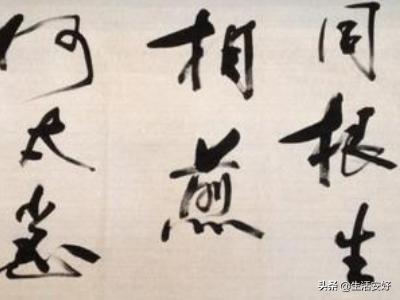 同根生
相煎
何太急
头条 @生活安好